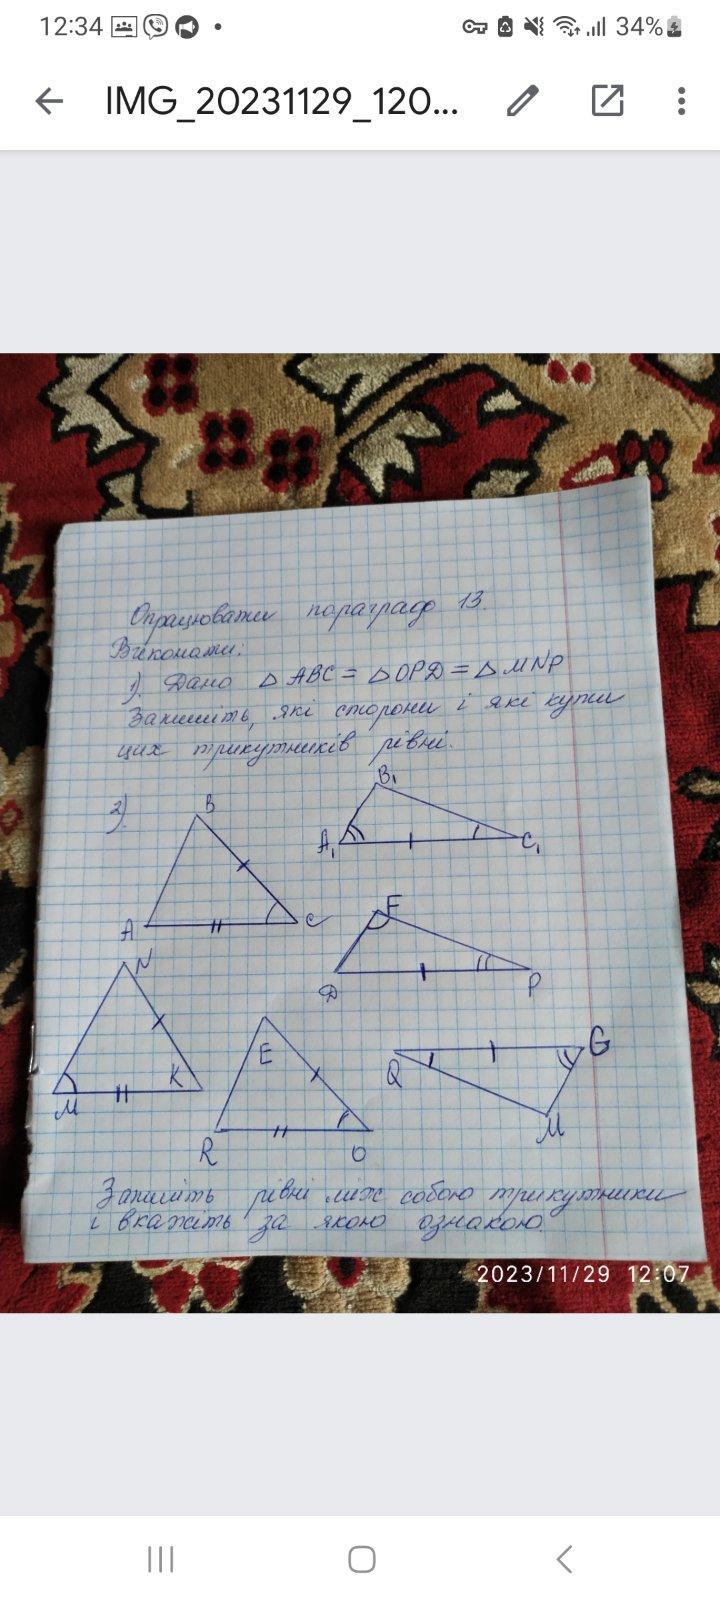 12:34
34%
IMG_20231129_120...
Опрацювати параграф 13.
Виконати:
1). Дано △ ABC = △ OPD = △ MNP
Запишіть, які сторони і які кути
цих трикутників рівні.
2).
B
A
C
B₁
A₁
C₁
F
D
P
N
M
K
E
R
O
Q
G
M
Запишіть рівні між собою трикутники
і вкажіть за якою ознакою.
2023/11/29 12:07